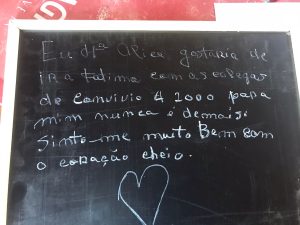 Eu Mª Alice gostaria de
ir a Fatima com as colegas
de convivio 4 1000 para
mim nunca é demais.
Sinto-me muito Bem com
o coração cheio.